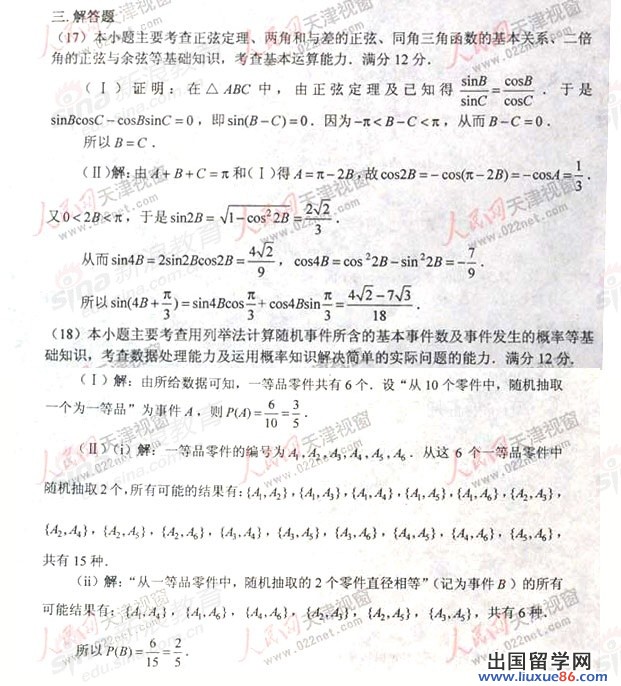 三. 解答题
（17）本小题主要考查正弦定理、两角和与差的正弦、同角三角函数的基本关系、二倍
角的正弦与余弦等基础知识，考查基本运算能力．满分 12 分．
（Ⅰ）证明：在 △ABC 中，由正弦定理及已知得 sinB/sinC = cosB/cosC ．于是
sinBcosC − cosBsinC = 0，即 sin(B − C) = 0．因为 −π < B − C < π，从而 B − C = 0．
所以 B = C．
（Ⅱ）解：由 A + B + C = π 和（Ⅰ）得 A = π − 2B，故 cos2B = − cos(π − 2B) = −cosA = 1/3．
又 0 < 2B < π，于是 sin2B = √(1−cos²2B) = 2√2/3．
从而 sin4B = 2sin2Bcos2B = 4√2/9，cos4B = cos²2B − sin²2B = −7/9．
所以 sin(4B + π/3) = sin4Bcos π/3 + cos4Bsin π/3 = (4√2 − 7√3)/18．
（18）本小题主要考查用列举法计算随机事件所含的基本事件数及事件发生的概率等基
础知识，考查数据处理能力及运用概率知识解决简单的实际问题的能力．满分 12 分．
（Ⅰ）解：由所给数据可知，一等品零件共有 6 个．设“从 10 个零件中，随机抽取
一个为一等品”为事件 A，则 P(A) = 6/10 = 3/5．
（Ⅱ）（i）解：一等品零件的编号为 A₁, A₂, A₃, A₄, A₅, A₆．从这 6 个一等品零件中
随机抽取 2 个，所有可能的结果有：{A₁, A₂}，{A₁, A₃}，{A₁, A₄}，{A₁, A₅}，{A₁, A₆}，{A₂, A₃}，
{A₂, A₄}，{A₂, A₅}，{A₂, A₆}，{A₃, A₄}，{A₃, A₅}，{A₃, A₆}，{A₄, A₅}，{A₄, A₆}，{A₅, A₆}，
共有 15 种．
（ii）解：“从一等品零件中，随机抽取的 2 个零件直径相等”（记为事件 B）的所有
可能结果有：{A₁, A₄}，{A₁, A₆}，{A₄, A₆}，{A₂, A₃}，{A₂, A₅}，{A₃, A₅}，共有 6 种．
所以 P(B) = 6/15 = 2/5．
出国留学网
www.liuxue86.com